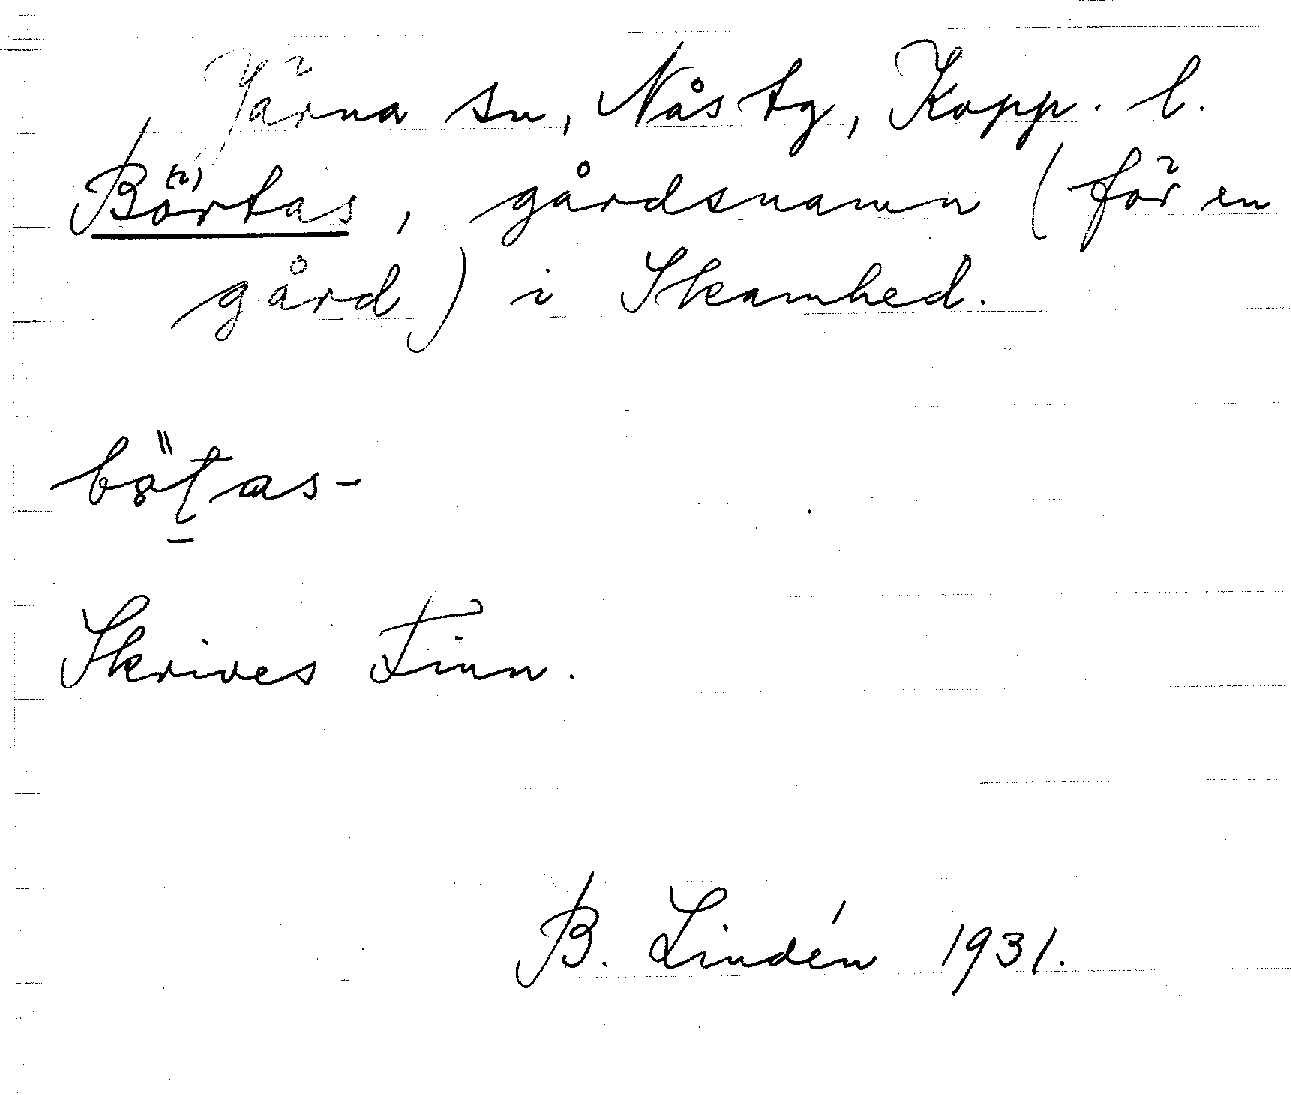 Järna sn, Nås tg, Kopp. l.
Börtas, gårdsnamn (för en
gård) i Skamhed.
bötas-
Skrives Finn.
B. Lindén 1931.